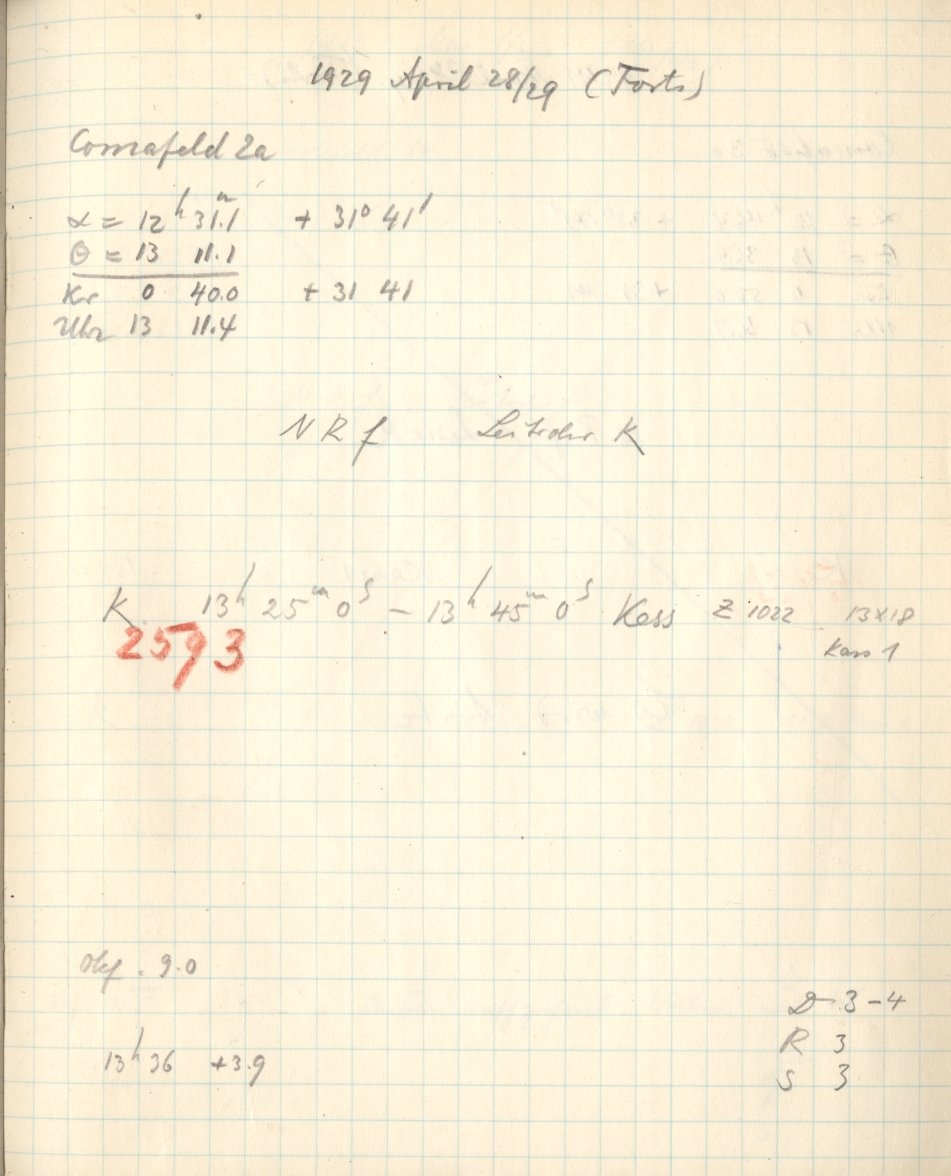 1929 April 28/29 (Forts)
Comafeld 2a
α = 12ʰ 31.1ᵐ + 31° 41'
θ = 13 11.1
Kr 0 40.0 + 31 41
Uhr 13 11.4
N R f Leitrohr K
K 13ʰ 25ᵐ 0ˢ – 13ʰ 45ᵐ 0ˢ Kess Z 1022 13x18
2593 Kass 1
Obj. 9.0
D 3-4
R 3
13ʰ 36 +3.9
S 3